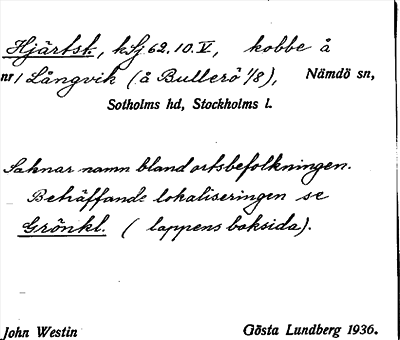 Hjärtsk., kSj 62.10.V, kobbe å
nr 1 Långvik (å Bullerö 1/8), Nämdö sn,
Sotholms hd, Stockholms l.
Saknar namn bland ortsbefolkningen.
Beträffande lokaliseringen se
Grönkl. (lappens baksida).
John Westin Gösta Lundberg 1936.